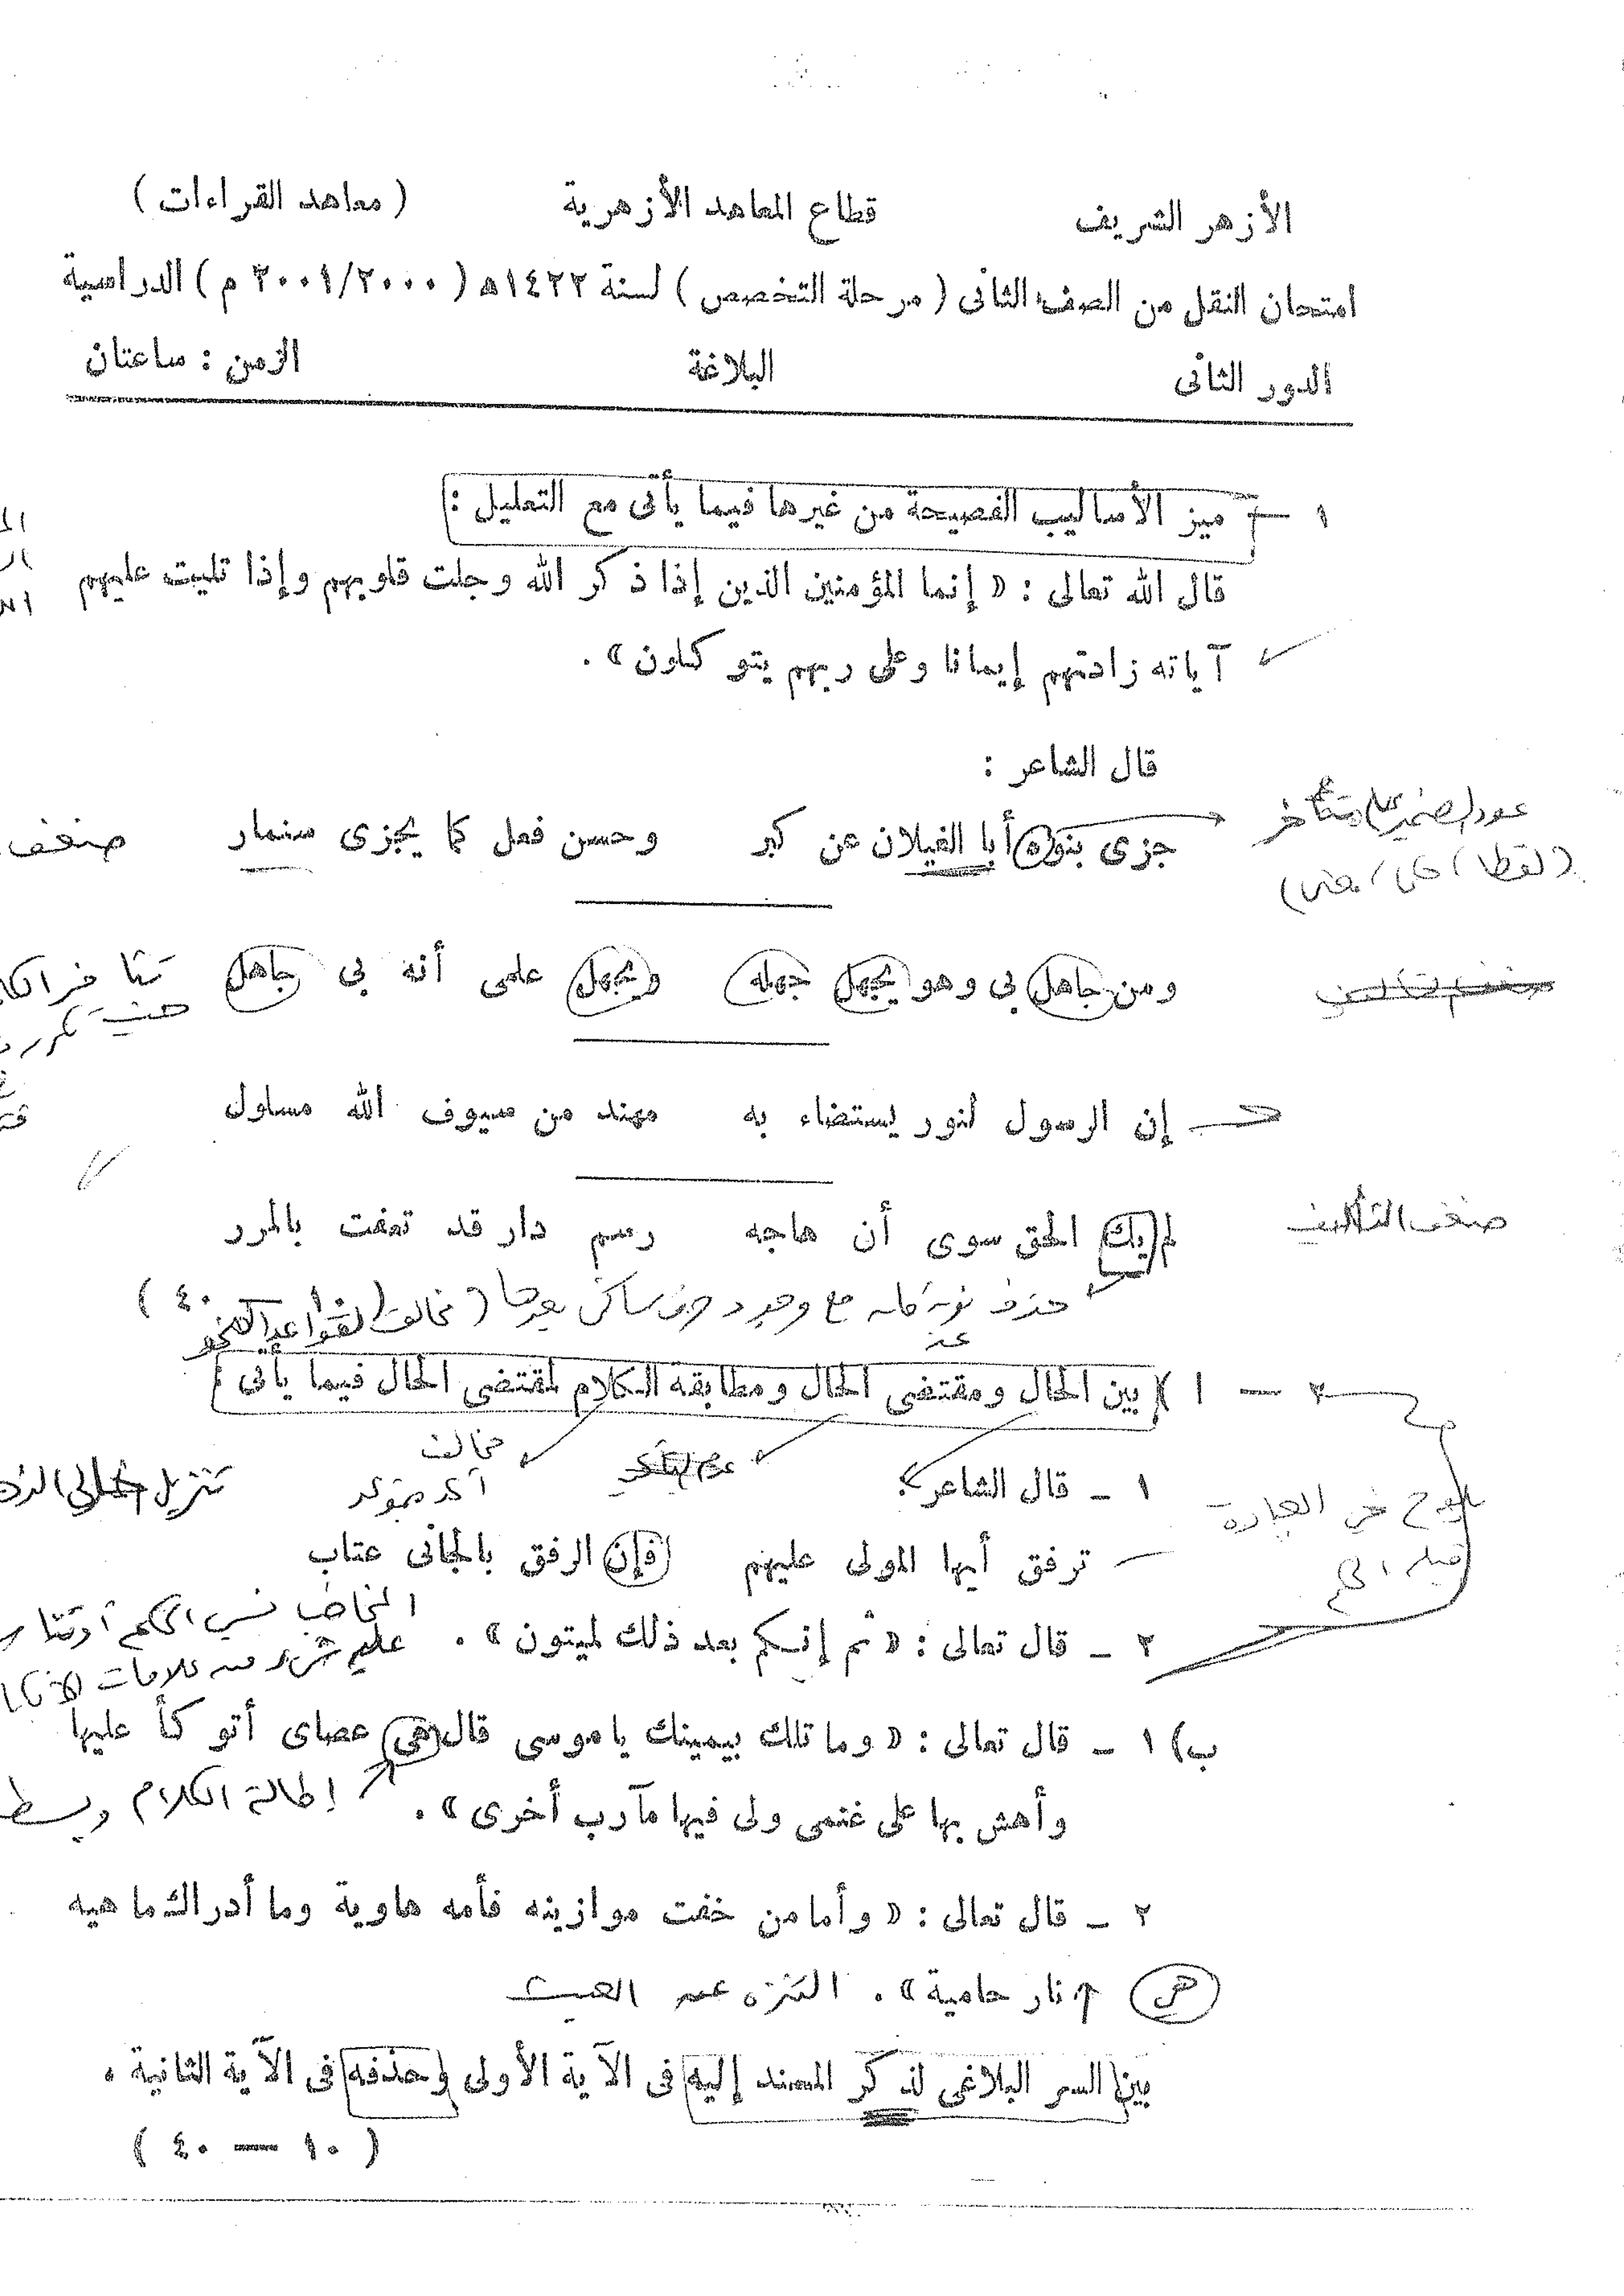 الأزهر الشريف قطاع المعاهد الأزهرية ( معاهد القراءات )
امتحان النقل من الصف الثانى ( مرحلة التخصص ) لسنة ١٤٢٢ه ( ٢٠٠١/٢٠٠٠ م ) الدراسية
الدور الثانى البلاغة الزمن : ساعتان
١ — ميز الأساليب الفصيحة من غيرها فيما يأتى مع التعليل :
قال الله تعالى : « إنما المؤمنين الذين إذا ذكر الله وجلت قلوبهم وإذا تليت عليهم
آياته زادتهم إيمانا وعلى ربهم يتوكلون » .
قال الشاعر :
عود الضمير على متأخر
جزى بنوه أبا الغيلان عن كبر وحسن فعل كما يجزى سنمار ضعف
ومن جاهل بى وهو يجهل جهله ويجهل علمى أنه بى جاهل
إن الرسول لنور يستضاء به مهند من سيوف الله مسلول
ضعف التأليف
لم يك الحق سوى أن هاجه رسم دار قد تعفت بالمرر
حذف نون كان مع وجود حرف ساكن بعدها ( مخالف لقواعد النحو
( ١٠ ٤٠ )
٢ — ا ) بين الحال ومقتضى الحال ومطابقة الكلام لمقتضى الحال فيما يأتى :
١ ـ قال الشاعر :
ترفق أيها المولى عليهم فإن الرفق بالجانى عتاب
٢ ـ قال تعالى : « ثم إنكم بعد ذلك لميتون » .
ب) ١ ـ قال تعالى : « وما تلك بيمينك ياموسى قال هى عصاى أتوكأ عليها
وأهش بها على غنمى ولى فيها مآرب أخرى » . إطالة الكلام
٢ ـ قال تعالى : « وأما من خفت موازينه فأمه هاوية وما أدراك ما هيه
هى نار حامية » . التنزه عن العبث
بين السر البلاغى لذكر المسند إليه فى الآية الأولى وحذفه فى الآية الثانية .
( ١٠ — ٤٠ )